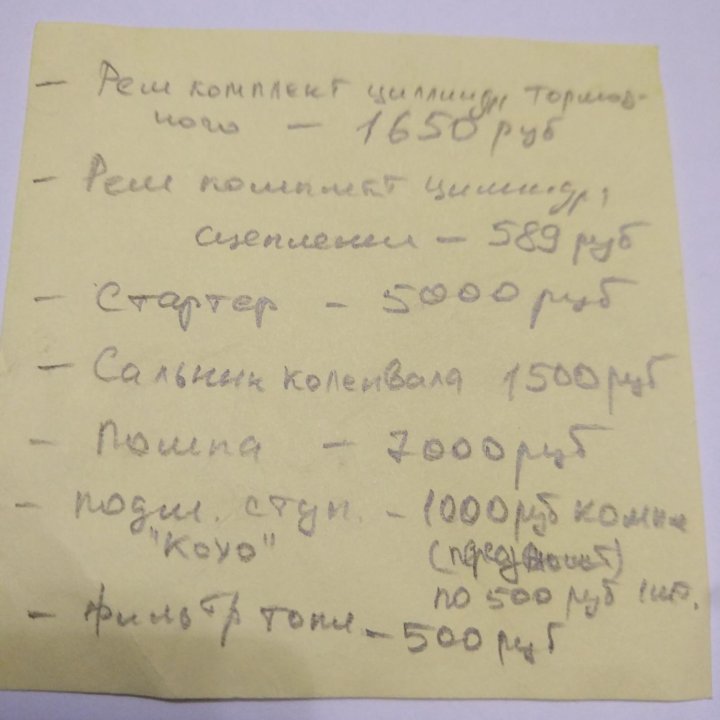 - Рем комплект циллиндр тормоз-
ного - 1650 руб
- Рем комплект цилиндр,
сцепления - 589 руб
- Стартер - 5000 руб
- Сальник коленвала 1500 руб
- Помпа - 7000 руб
- подш. ступ. - 1000 руб компл
"Koyo"
по 500 руб 1шт.
- фильтр топл - 500 руб